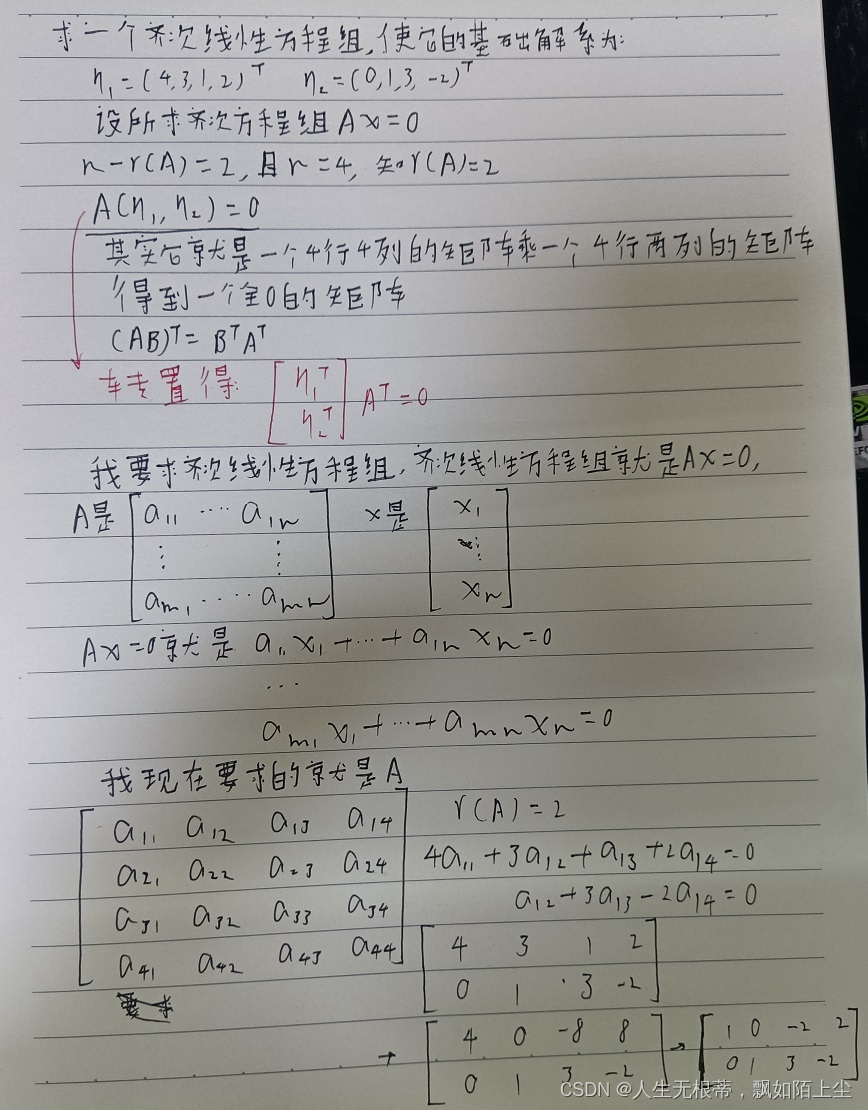 求一个齐次线性方程组,使它的基础解系为:
η₁=(4,3,1,2)ᵀ η₂=(0,1,3,-2)ᵀ
设所求齐次方程组Ax=0
n-r(A)=2,且n=4,知r(A)=2
A(η₁,η₂)=0
其实它就是一个4行4列的矩阵乘一个4行两列的矩阵
得到一个全0的矩阵
(AB)ᵀ=BᵀAᵀ
转置得: [η₁ᵀ η₂ᵀ] Aᵀ=0
我要求齐次线性方程组,齐次线性方程组就是Ax=0,
A是 [a₁₁ ···· a₁ₙ x是 [x₁
⋮ ⋮ ⋮
aₘ₁ ···· aₘₙ] xₙ]
Ax=0就是 a₁₁x₁+···+a₁ₙxₙ=0
···
aₘ₁x₁+···+aₘₙxₙ=0
我现在要求的就是A
a₁₁ a₁₂ a₁₃ a₁₄ r(A)=2
a₂₁ a₂₂ a₂₃ a₂₄ 4a₁₁+3a₁₂+a₁₃+2a₁₄=0
a₃₁ a₃₂ a₃₃ a₃₄ a₁₂+3a₁₃-2a₁₄=0
a₄₁ a₄₂ a₄₃ a₄₄ 4 3 1 2
0 1 3 -2
→ 4 0 -8 8 → 1 0 -2 2
0 1 3 -2 0 1 3 -2
CSDN @人生无根蒂,飘如陌上尘